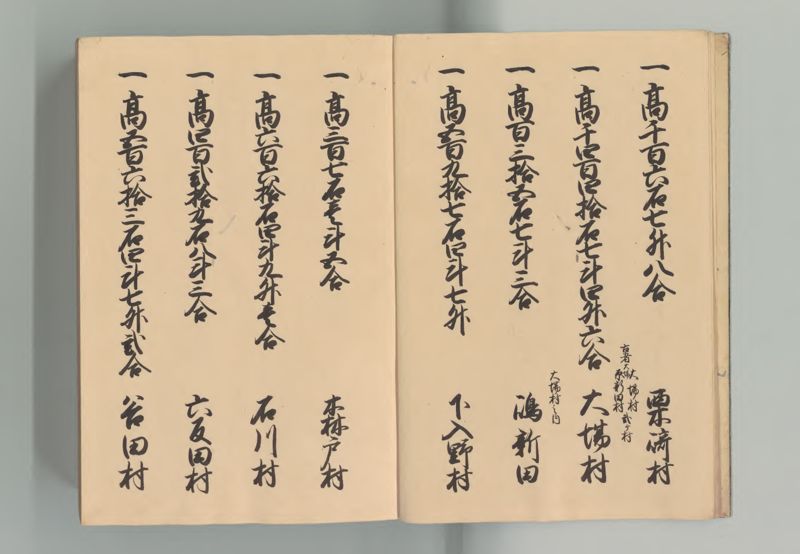 一 高千百六石七升八合 栗崎村
一 高千四百四拾石七斗四升六合 大場村
古者大場村
原新田村弐ケ村
一 高百三拾五石七斗三合 嶋新田
大場村之内
一 高五百九拾七石四斗七升 下入野村
一 高三百七石壱斗五合 森戸村
一 高六百六拾石四斗九升壱合 石川村
一 高四百弐拾五石八斗三合 六反田村
一 高五百六拾三石四斗七升弐合 谷田村